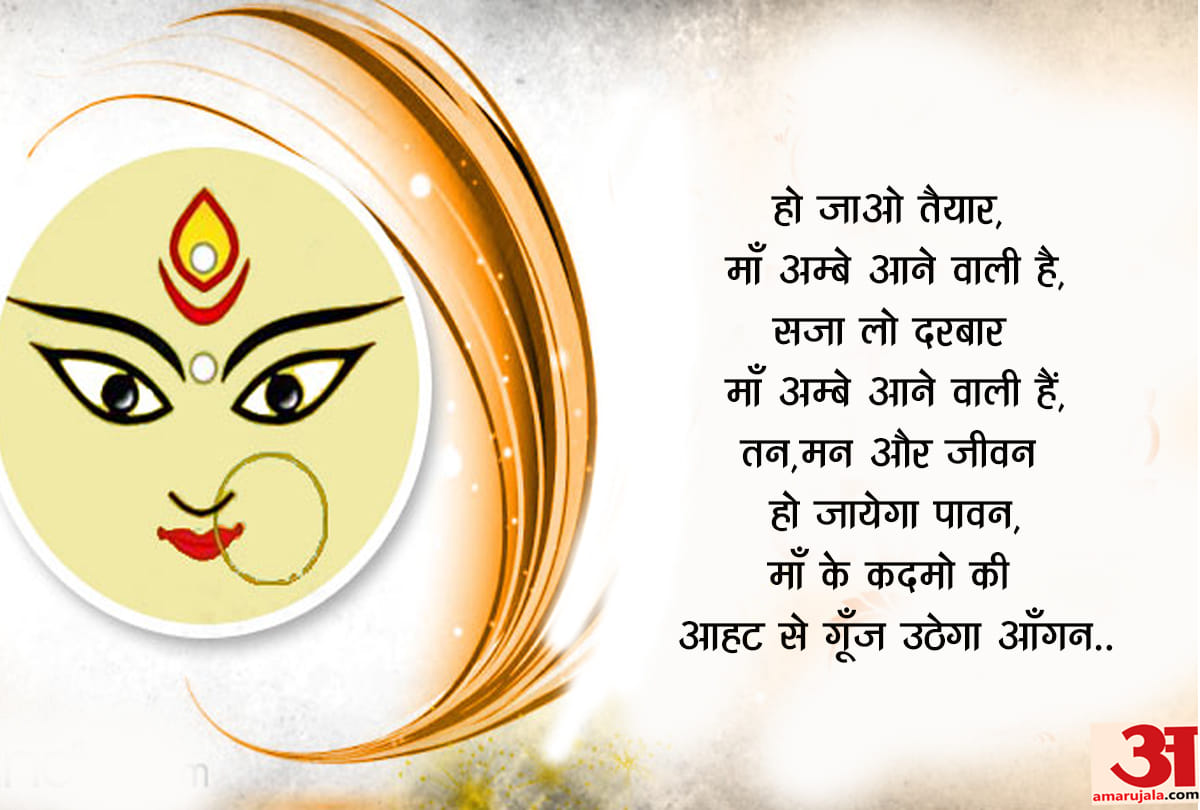 हो जाओ तैयार,
माँ अम्बे आने वाली है,
सजा लो दरबार
माँ अम्बे आने वाली हैं,
तन,मन और जीवन
हो जायेगा पावन,
माँ के कदमो की
आहट से गूँज उठेगा आँगन..
अ
amarujala.com